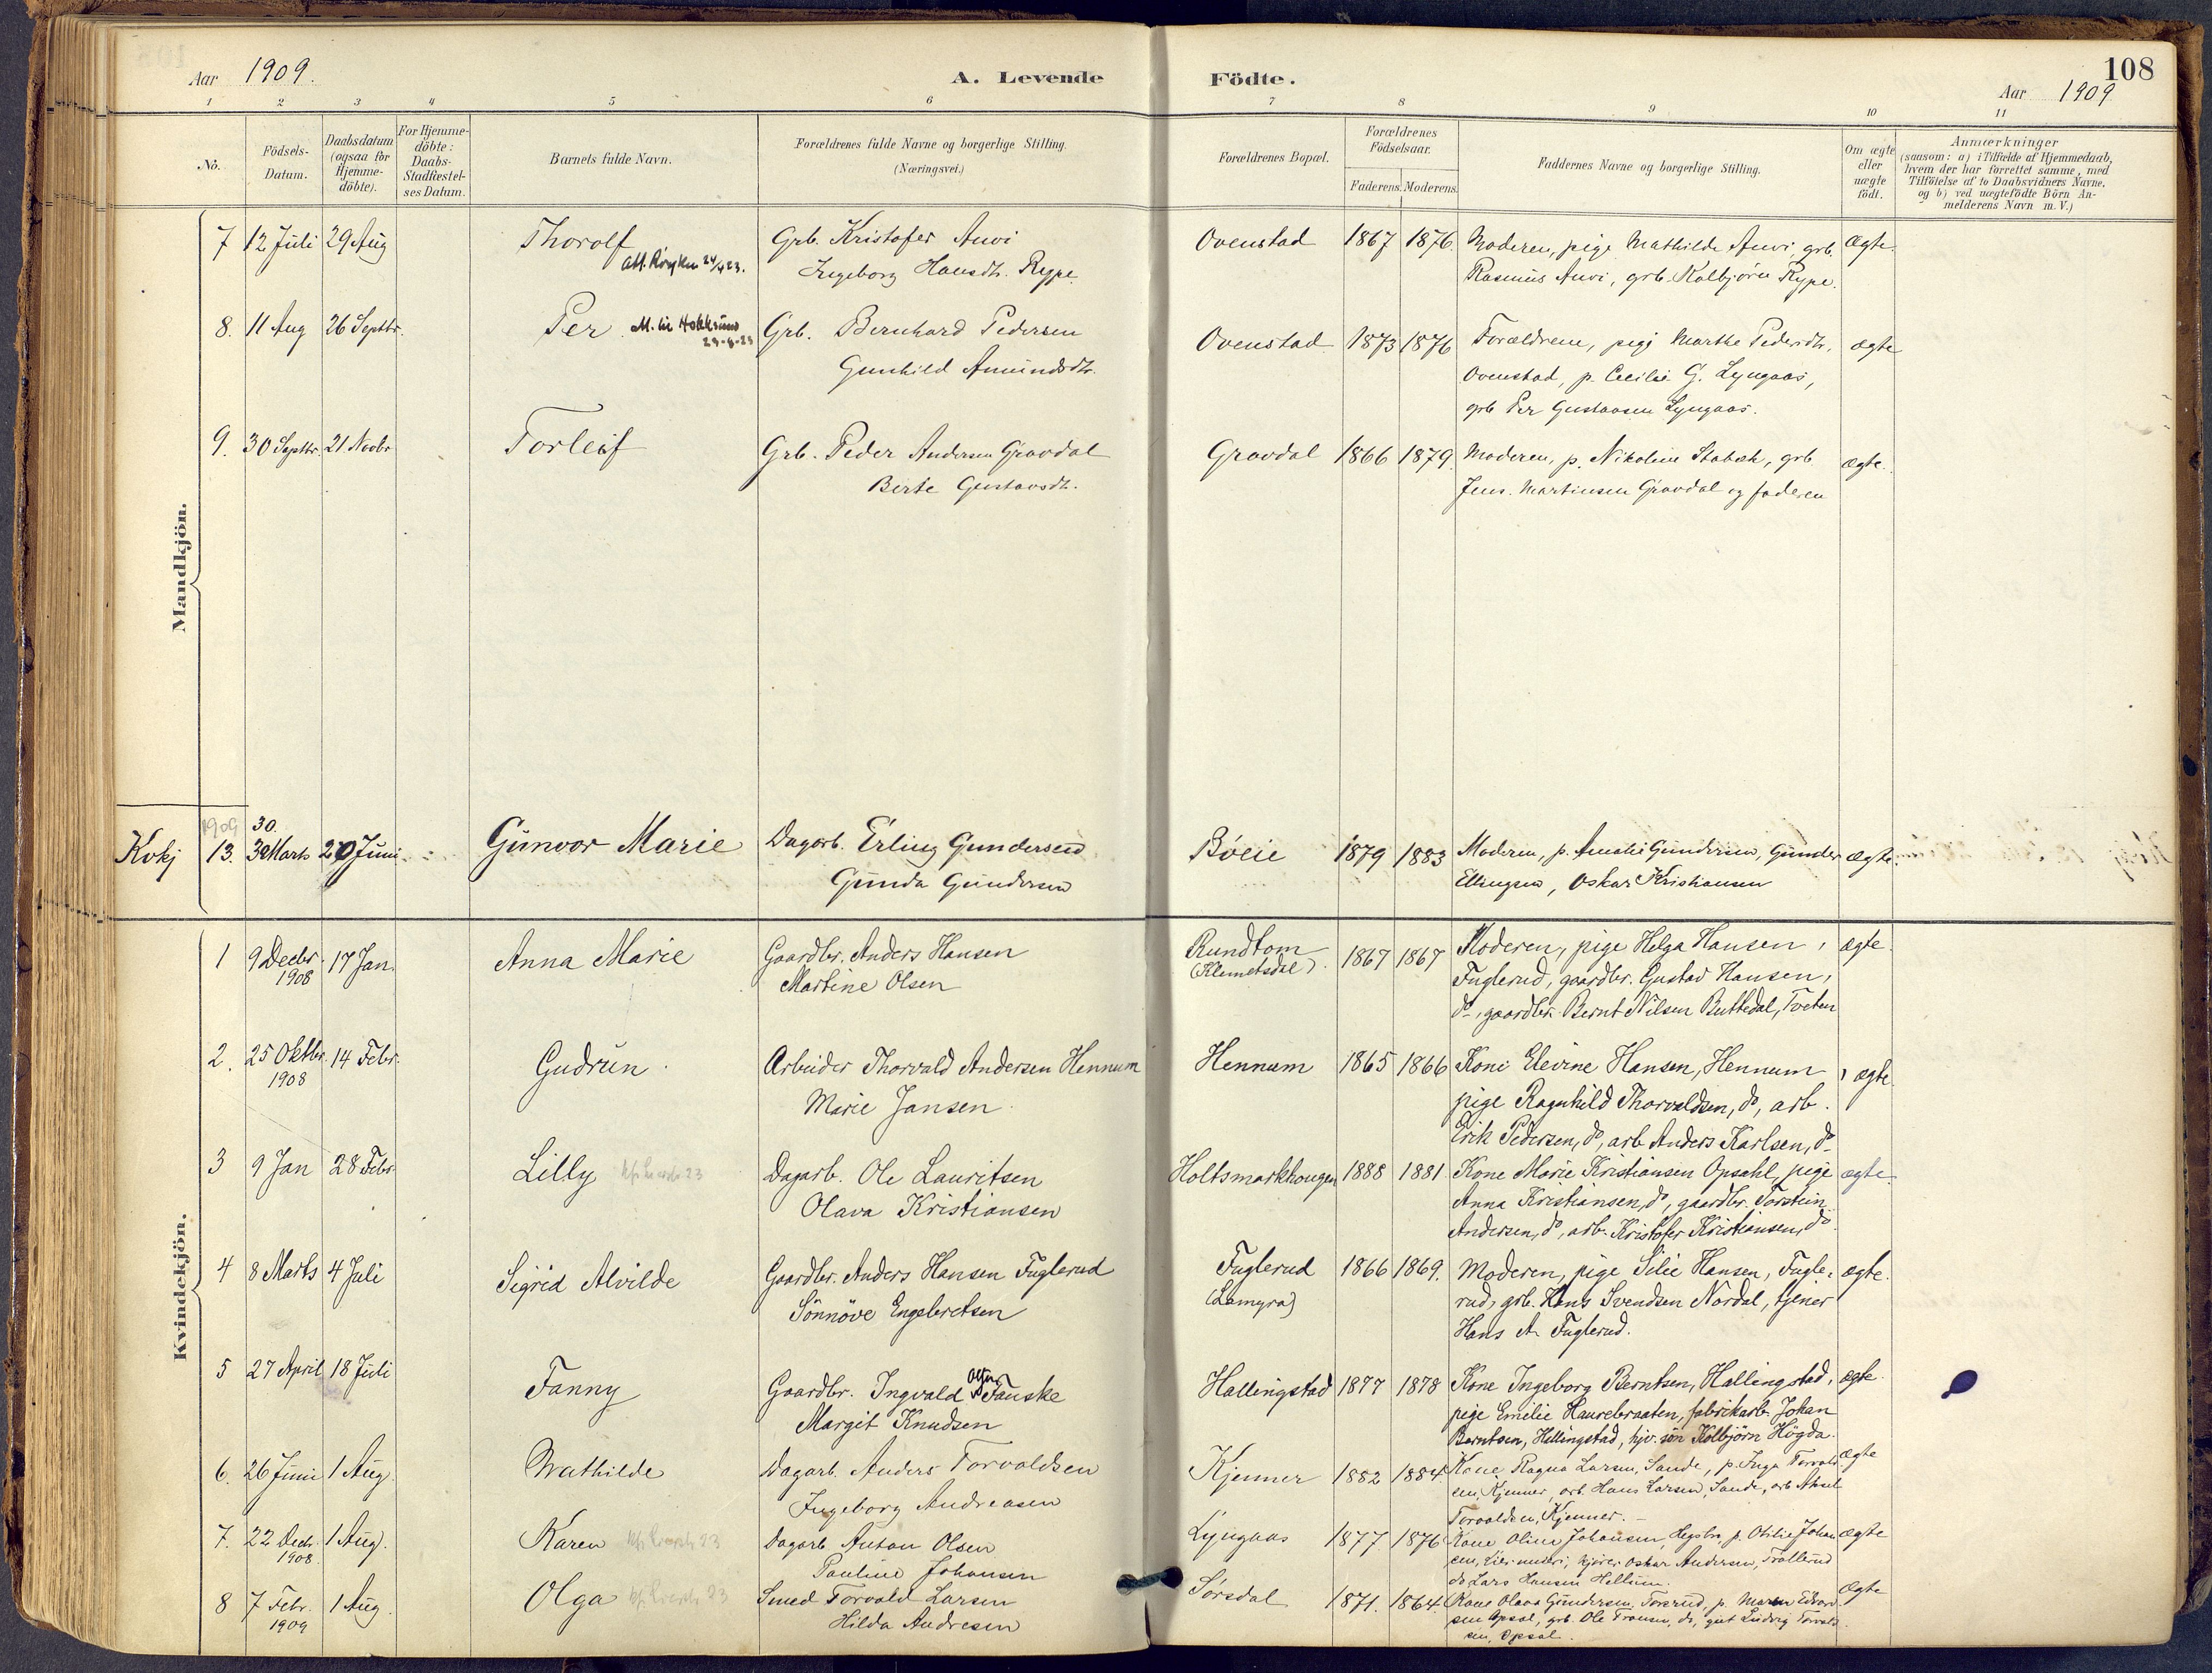 Aar 1909.
A. Levende Födte.
108
Aar 1909
1 2 3 4 5 6 7 8 9 10 11
No.
Födsels-Datum.
Daabsdatum (ogsaa for Hjemme-döbte).
For Hjemme-döbte: Daabs-Stadfæstel-ses Datum.
Barnets fulde Navn.
Forældrenes fulde Navne og borgerlige Stilling. (Næringsvei.)
Forældrenes Bopæl.
Forældrenes Födselsaar.
Faderens. Moderens.
Faddernes Navne og borgerlige Stilling.
Om ægte eller uægte födt.
Anmærkninger
(saasom: a) i Tilfælde af Hjemmedaab,
hvem der har forrettet samme, med
Tilföielse af to Daabsvidners Navne,
og b) ved uægtefödte Börn An-
melderens Navn m. V.)
Mandkjön.
7 12 Juli 29 Aug Thorolf Grb. Kristofer Auvi Ovenstad 1867 1876. Moderen, pige Mathilde Auvi, grb. Ægte.
att. Röyken 24/4 23. Ingeborg Hansdtr. Rype. Rasmus Auvi, grb. Kolbjörn Rype.
8. 11 Aug 26 Septbr. Per. M. til Hokksund Grb. Bernhard Pedersen Ovenstad 1873 1876 Forældrene, pige Marthe Pedersdtr. ægte
Gunhild Amundsdtr. Ovenstad, p. Cecilie G. Lyngaas,
grb Per Gustavsen Lyngaas.
9. 30 Septbr. 21 Novbr Torleif Grb. Peder Andersen Gravdal Gravdal 1866 1879. Moderen, p. Nikoline Stabæk, grb ægte.
Berte Gustavsdtr. Jens Martinsen Gravdal og faderen
1909 30.
Kvkj 13. 30 Marts 20 Juni Gunvor Marie Dagarb. Erling Gundersen Böeie 1879 1883 Moderen, p. Amalie Gundersen, Gunder ægte.
Gunda Gundersen Ellingsen, Oskar Kristiansen
Kvindekjön.
1 9 Decbr. 1908 17 Jan. Anna Marie Gaardbr. Anders Hansen Rundtom (Klemetsdal). 1867 1867 Moderen, pige Helga Hansen, ægte.
Martine Olsen Fuglerud, gaardbr. Gustav Hansen,
do, gaardbr. Bernt Nilsen Buttedal, Tveten
2. 25 Oktbr. 1908 14 Febr. Gudrun. Arbeider Thorvald Andersen Hennum Hennum 1865 1866 Kone Elevine Hansen, Hennum, ægte.
Marie Jansen. pige Ragnhild Thorvaldsen, do, arb.
Erik Pedersen, do, arb Anders Karlsen, do
3 9 Jan 28 Febr Lilly Dagarb. Ole Lauritsen Holtsmarkhougen 1888 1881 Kone Marie Kristiansen Opsahl, pige ægte.
Olava Kristiansen Anna Kristiansen, do, gaardbr. Torstein
Andersen, do, arb. Kristofer Kristiansen, do.
4 8 Marts 4 Juli Sigrid Alvilde Gaardbr. Anders Hansen Fuglerud Fuglerud (Lamyra) 1866 1869. Moderen, pige Silie Hansen, Fugle- ægte.
Sönnöve Engebretsen rud, grb. Hans Svendsen Nordal, tjener
Hans A. Fuglerud.
5 27 April 18 Juli Fanny Gaardbr. Ingvald Olsen Fauske Hallingstad 1877 1878 Kone Ingeborg Berntsen, Hallingstad, ægte.
Margit Knudsen pige Emilie Haurebraaten, fabrikarb. Johan
Berntsen, Hallingstad, hjv. sön Kolbjörn Högda.
6. 26 Juni 1 Aug. Mathilde Dagarb. Anders Torvaldsen Kjenner 1882 1884. Kone Ragna Larsen, Sande, p. Inga Torvald- Ægte
Ingeborg Andreasen sen, Kjenner, arb. Hans Larsen, Sande, arb Aksel
Torvaldsen, Kjenner.
7. 22 Decbr. 1908 1 Aug. Karen Dagarb Anton Olsen Lyngaas 1877 1876 Kone Olina Johansen, Hegsbro, p. Otilie Johan ægte
Pauline Johansen sen, kjörer Oskar Andersen, Trollerud
do Lars Hansen Hellum.
8 7 Febr. 1909 1 Aug. Olga Smed Torvald Larsen Sörsdal 1871. 1864. Kone Olava Gundersen, Torsrud, p. Maren Edvard Ægte
Hilda Andresen sen Opsal, grb. Ole Fransen, do, gut Ludvig Torvald
sen, Opsal.